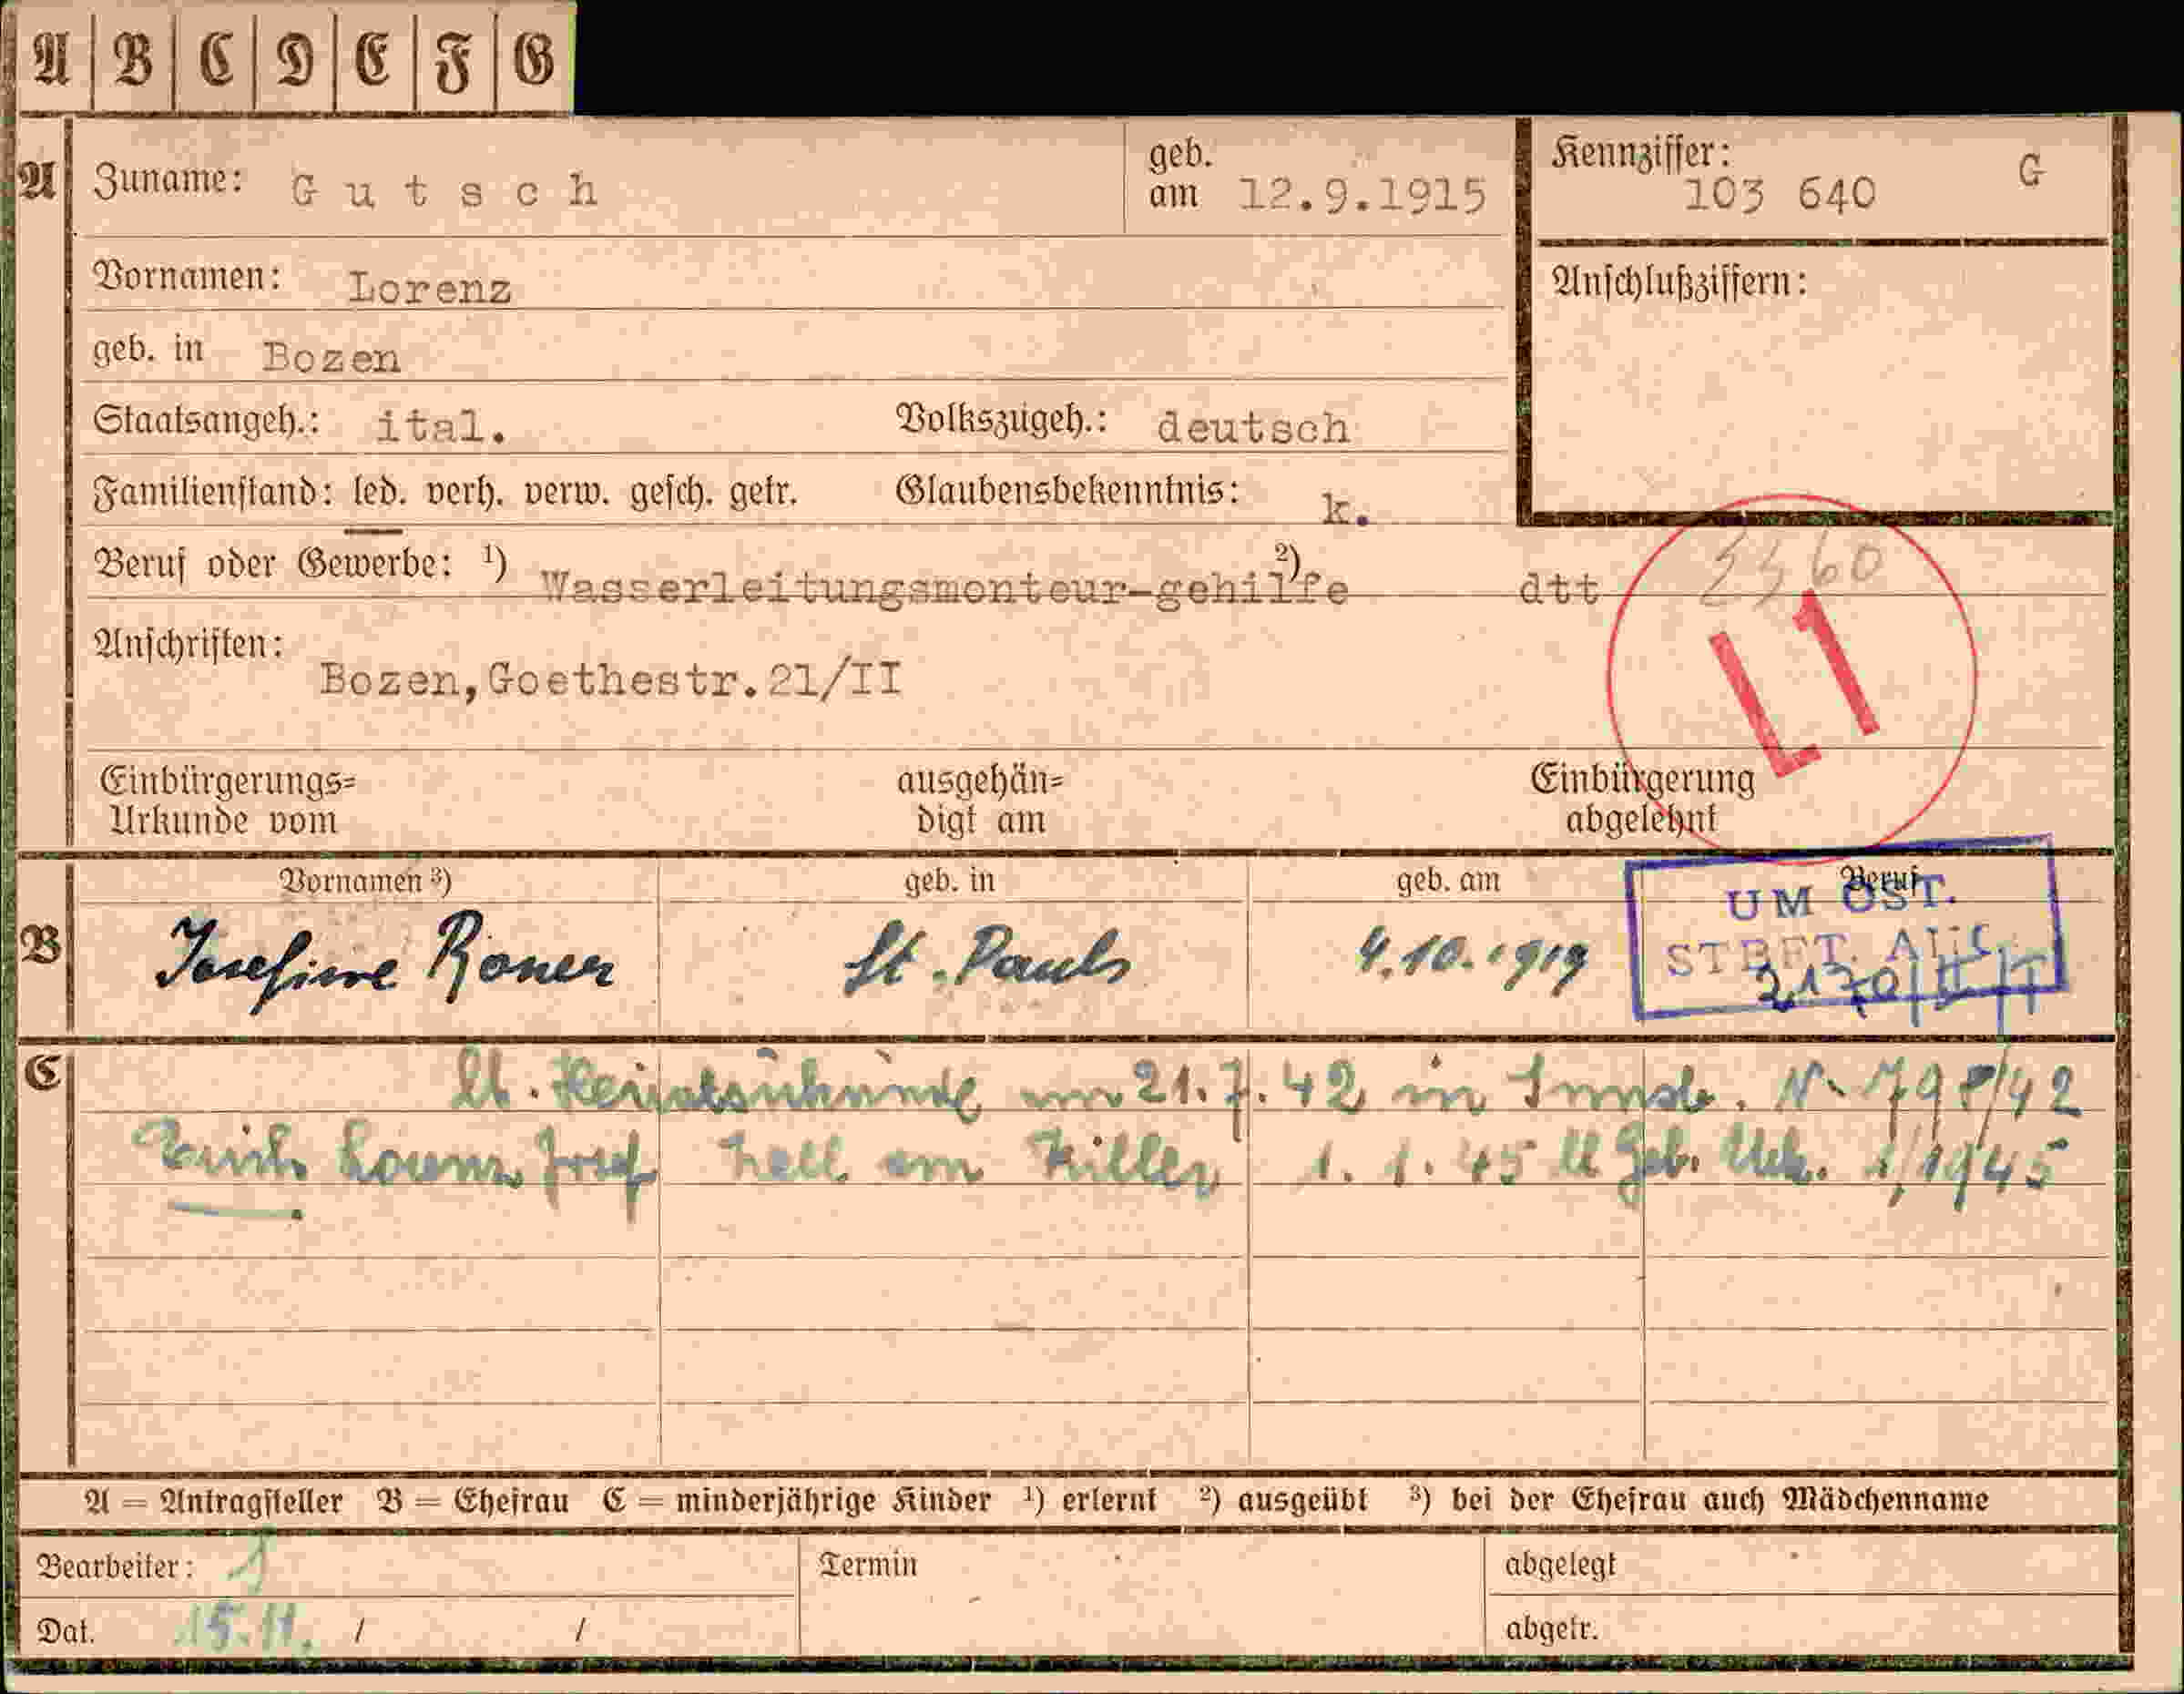 A B C D E F G
A Zuname: Gutsch geb. am 12.9.1915 Kennziffer: 103 640 G
Vornamen: Lorenz Anschlußziffern:
geb. in Bozen
Staatsangeh.: ital. Volkszugeh.: deutsch
Familienstand: led. verh. verw. gesch. getr. Glaubensbekenntnis: k.
Beruf oder Gewerbe: ¹) Wasserleitungsmonteur-gehilfe ²) dtt
Anschriften: L1
Bozen,Goethestr.21/II
Einbürgerungs= ausgehän= Einbürgerung
Urkunde vom digt am abgelehnt
Vornamen ³) geb. in geb. am Beruf
UM OST.
B Josefine Roner St. Pauls 4.10.1919
C lt. Heiratsurkunde am 21.7.42 in Innsb. 
Lorenz Josef Zell am Ziller 1.1.45 lt Geb. Urk. 1/1945
A = Antragsteller B = Ehefrau C = minderjährige Kinder ¹) erlernt ²) ausgeübt ³) bei der Ehefrau auch Mädchenname
Bearbeiter: Termin abgelegt
Dat. 15.11. / / abgetr.